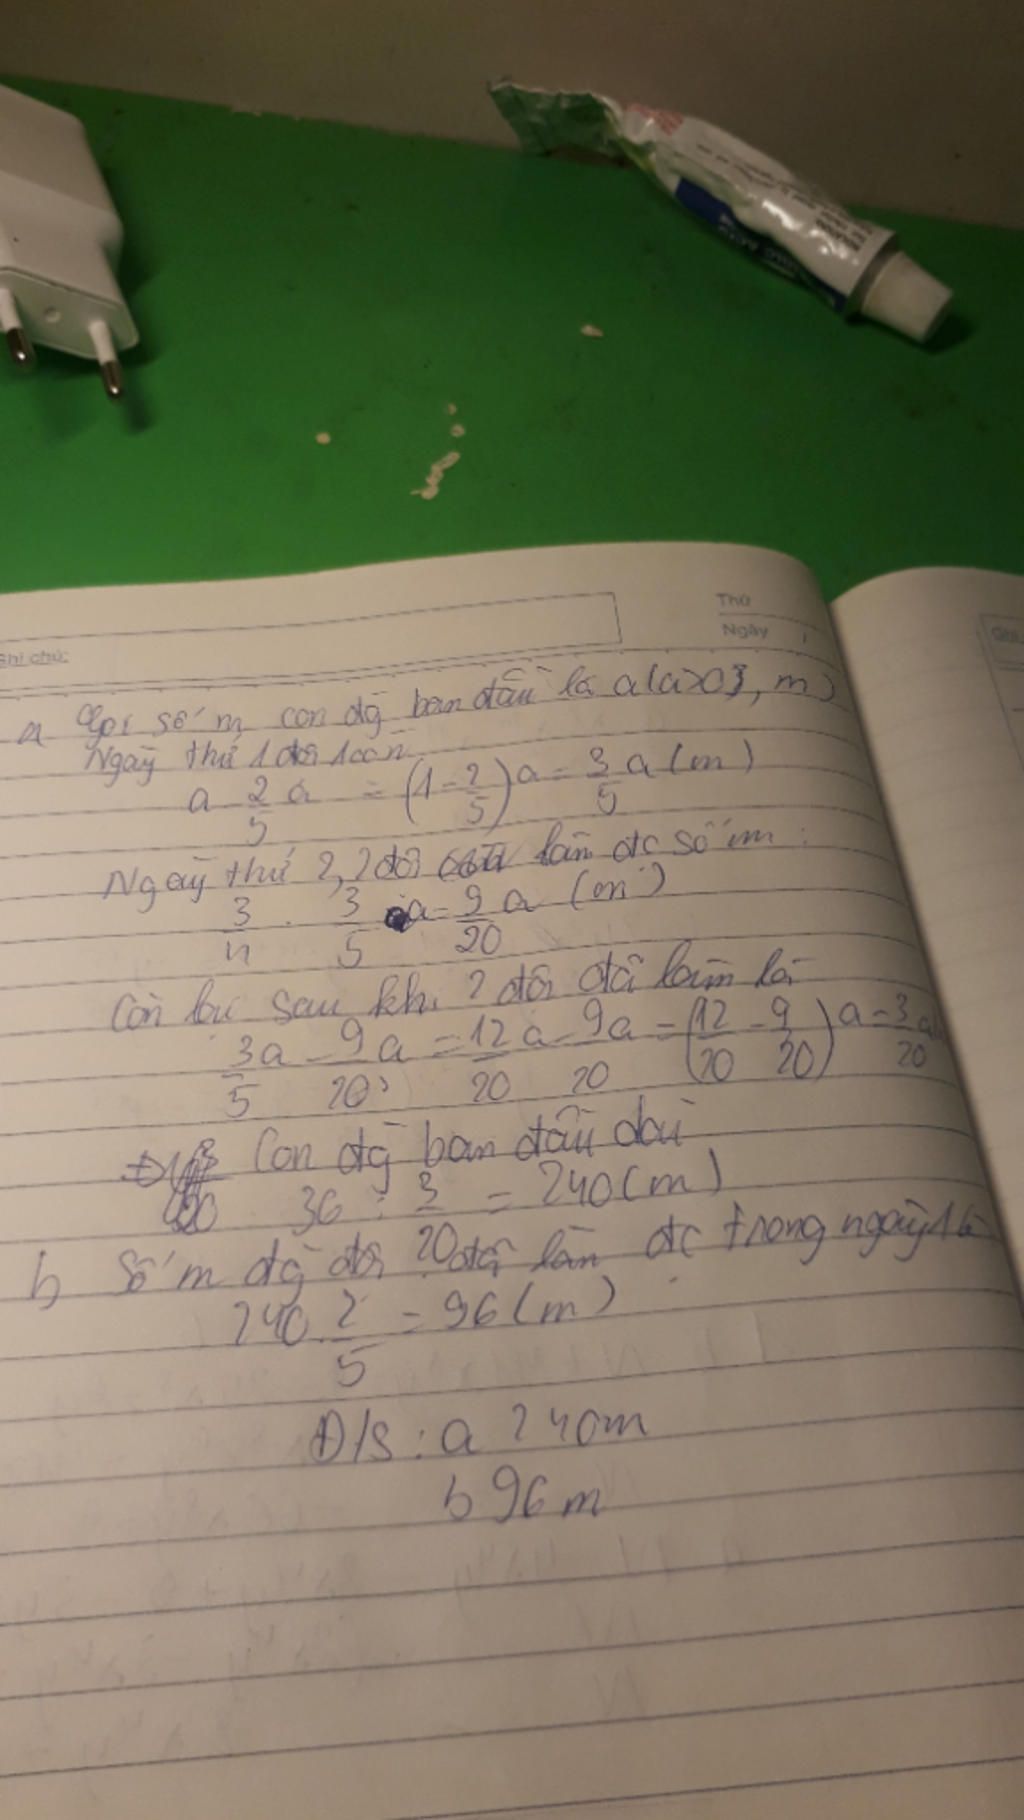 Thứ
Ngày
Ghi chú:
a Gọi số m con đg ban đầu là a(a>0, m)
Ngày thứ 1 đội
a - 2/5 a = (1 - 2/5)a = 3/5 a (m)
Ngày thứ 2, 2 đội làm đc số m:
3/4 . 3/5 a = 9/20 a (m)
Còn lại sau khi 2 đội đã làm là
3/5 a - 9/20 a = 12/20 a - 9/20 a = (12/20 - 9/20) a = 3/20 a
Con đg ban đầu dài
36 : 3/20 = 240 (m)
b, Số m đg đội đã làm đc trong ngày 1 là
240 . 2/5 = 96 (m)
Đ/S: a 240m
b 96m